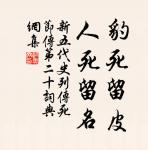 豹死留皮
人死留名
新五代史列傳死
節傳第二十詞典
網集